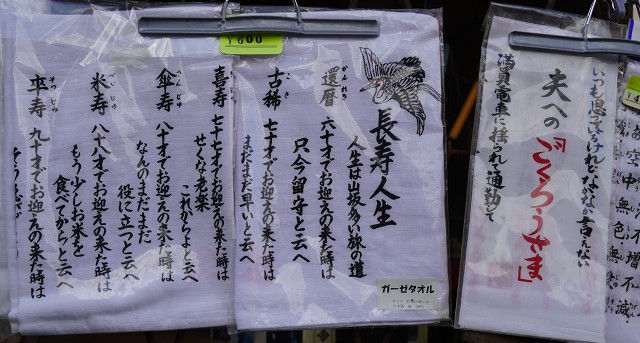 ¥600
長寿人生
人生は山坂多い旅の道
還暦 かんれき
六十才でお迎えの来た時は
只今留守と云へ
古稀 こき
七十才でお迎えの来た時は
まだまだ早いと云へ
喜寿 きじゅ
七十七才でお迎えの来た時は
せくな老楽
これからよと云へ
傘寿 さんじゅ
八十才でお迎えの来た時は
なんのまだまだ
役に立つと云へ
米寿 べいじゅ
八十八才でお迎えの来た時は
もう少しお米を
食べてからと云へ
卒寿 そつじゅ
九十才でお迎えの来た時は
ガーゼタオル
いつも思っているけれどなかなか言えない
夫への
「ごくろうさま」
満員電車に揺られ通勤して
不増不減
空中無色